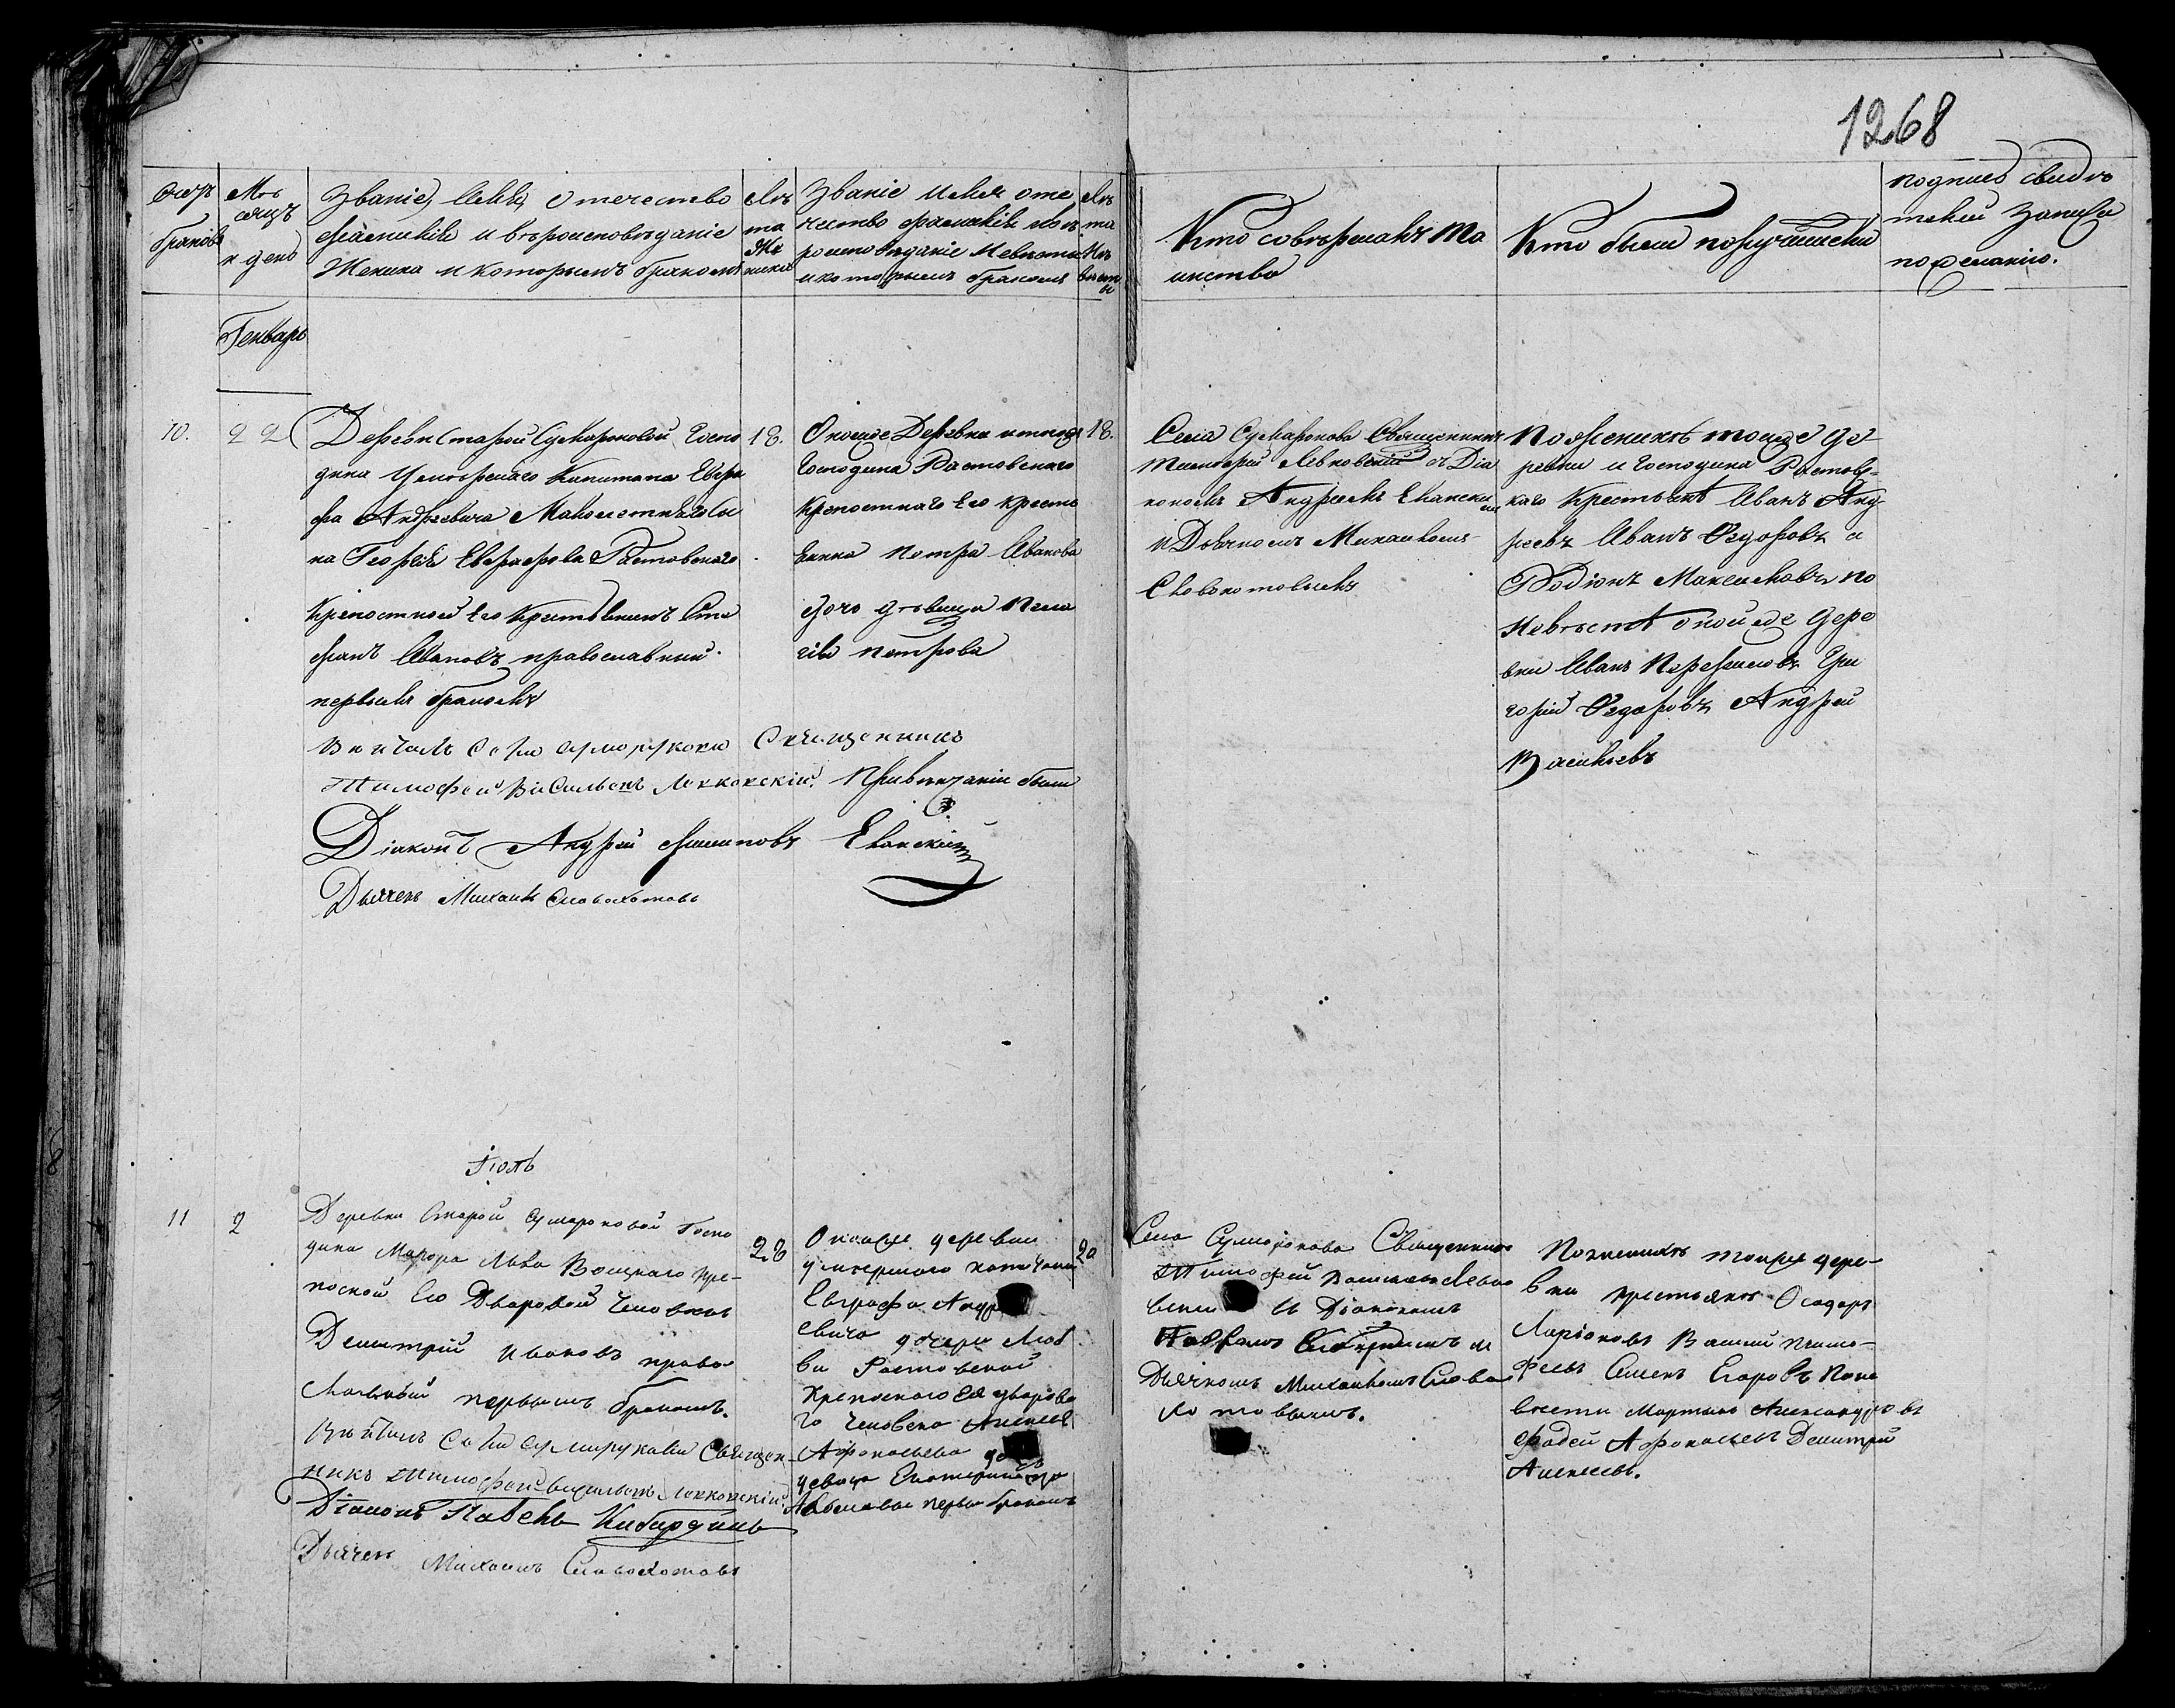 1268
Счетъ браковъ
Мѣсяцъ и день
Званіе, Имя, Отечество
фамилія и вѣроисповѣданіе
Жениха и которымъ бракомъ
Лѣта Жениха
Званіе Имя оте
чество фамилія вѣ
роисповѣданіе Невѣсты
и которымъ бракомъ
Лѣта Невѣсты
Кто совершалъ Та
инство
Кто были поручители
подпись свидѣ
телей записи
по желанію.
Генварь
10.
22
Деревни Старой Сумароковой Госпо
дина Умершаго Капитана Евгра
фа Андреевича Малолетнаго сы
на Георгія Евграфова Растовскаго
Крепостной его Крестьянинъ Сте
фанъ Ивановъ православный
первымъ бракомъ
18.
Оноиже Деревни и тогоже
Господина Растовскаго
Крепостнаго его кресть
янина Петра Иванова
дочь дѣвица Пела
гія Петрова
18.
Села Сумарокова Священникъ
Тимофей Левковскій съ Діа
кономъ Андреемъ Еланским
и Дьячкомъ Михаиломъ
Словохотовымъ
По Женихѣ тоиже де
ревни и Господина Растовс
каго Крестьянѣ Иванъ Анд
реевъ Иванъ Федоровъ и
Родіонъ Максимовъ по
Невѣстѣ оноиже дере
вни Иванъ Перфиловъ Гри
горій Федоровъ Андрей
Васильевъ
Вѣнчалъ Села Сумарукова Священникъ
Тимофей Васильевъ Левковскій. При вѣнчаніи были
Діаконъ Андрей Филиповъ Еланскій
Дьячекъ Михаилъ Словохотовъ
Іюль
11
2
Деревни Старой Сумароковой Госпо
дина Маіора Льва Воецкаго кре-
постной Его Дворовой Человекъ
Димитрій Ивановъ право
славный первымъ бракомъ.
28
Оноиже деревни
умершаго капитана
Евграфа Андр
евича дочери Люб
ви Растовской
Крепоснаго Ея дворова
го человека Алексея
Афонасьева
девица Екатерина
Алексеева первы бракомъ
20
Села Сумарокова Священникъ
Тимофей Васильевъ Левко
вски И Діакономъ
Павломъ Кибардинымъ и
Дьячкомъ Михаиломъ Слово
хотовымъ.
По женихѣ тоиже дере-
вни крестьяне Феодоръ
Ларіоновъ Василий Тимо-
феевъ Семенъ Егоровъ По не
вести Мартынъ Александровъ
Фадей Афонасьевъ Димитрий
Алексеевъ.
Вѣнчалъ Села Сумарукова Священ-
никъ Тимофей Васильевъ Левковскій
Діаконъ Павелъ Кибардинъ
Дьячекъ Михаилъ Словохотовъ